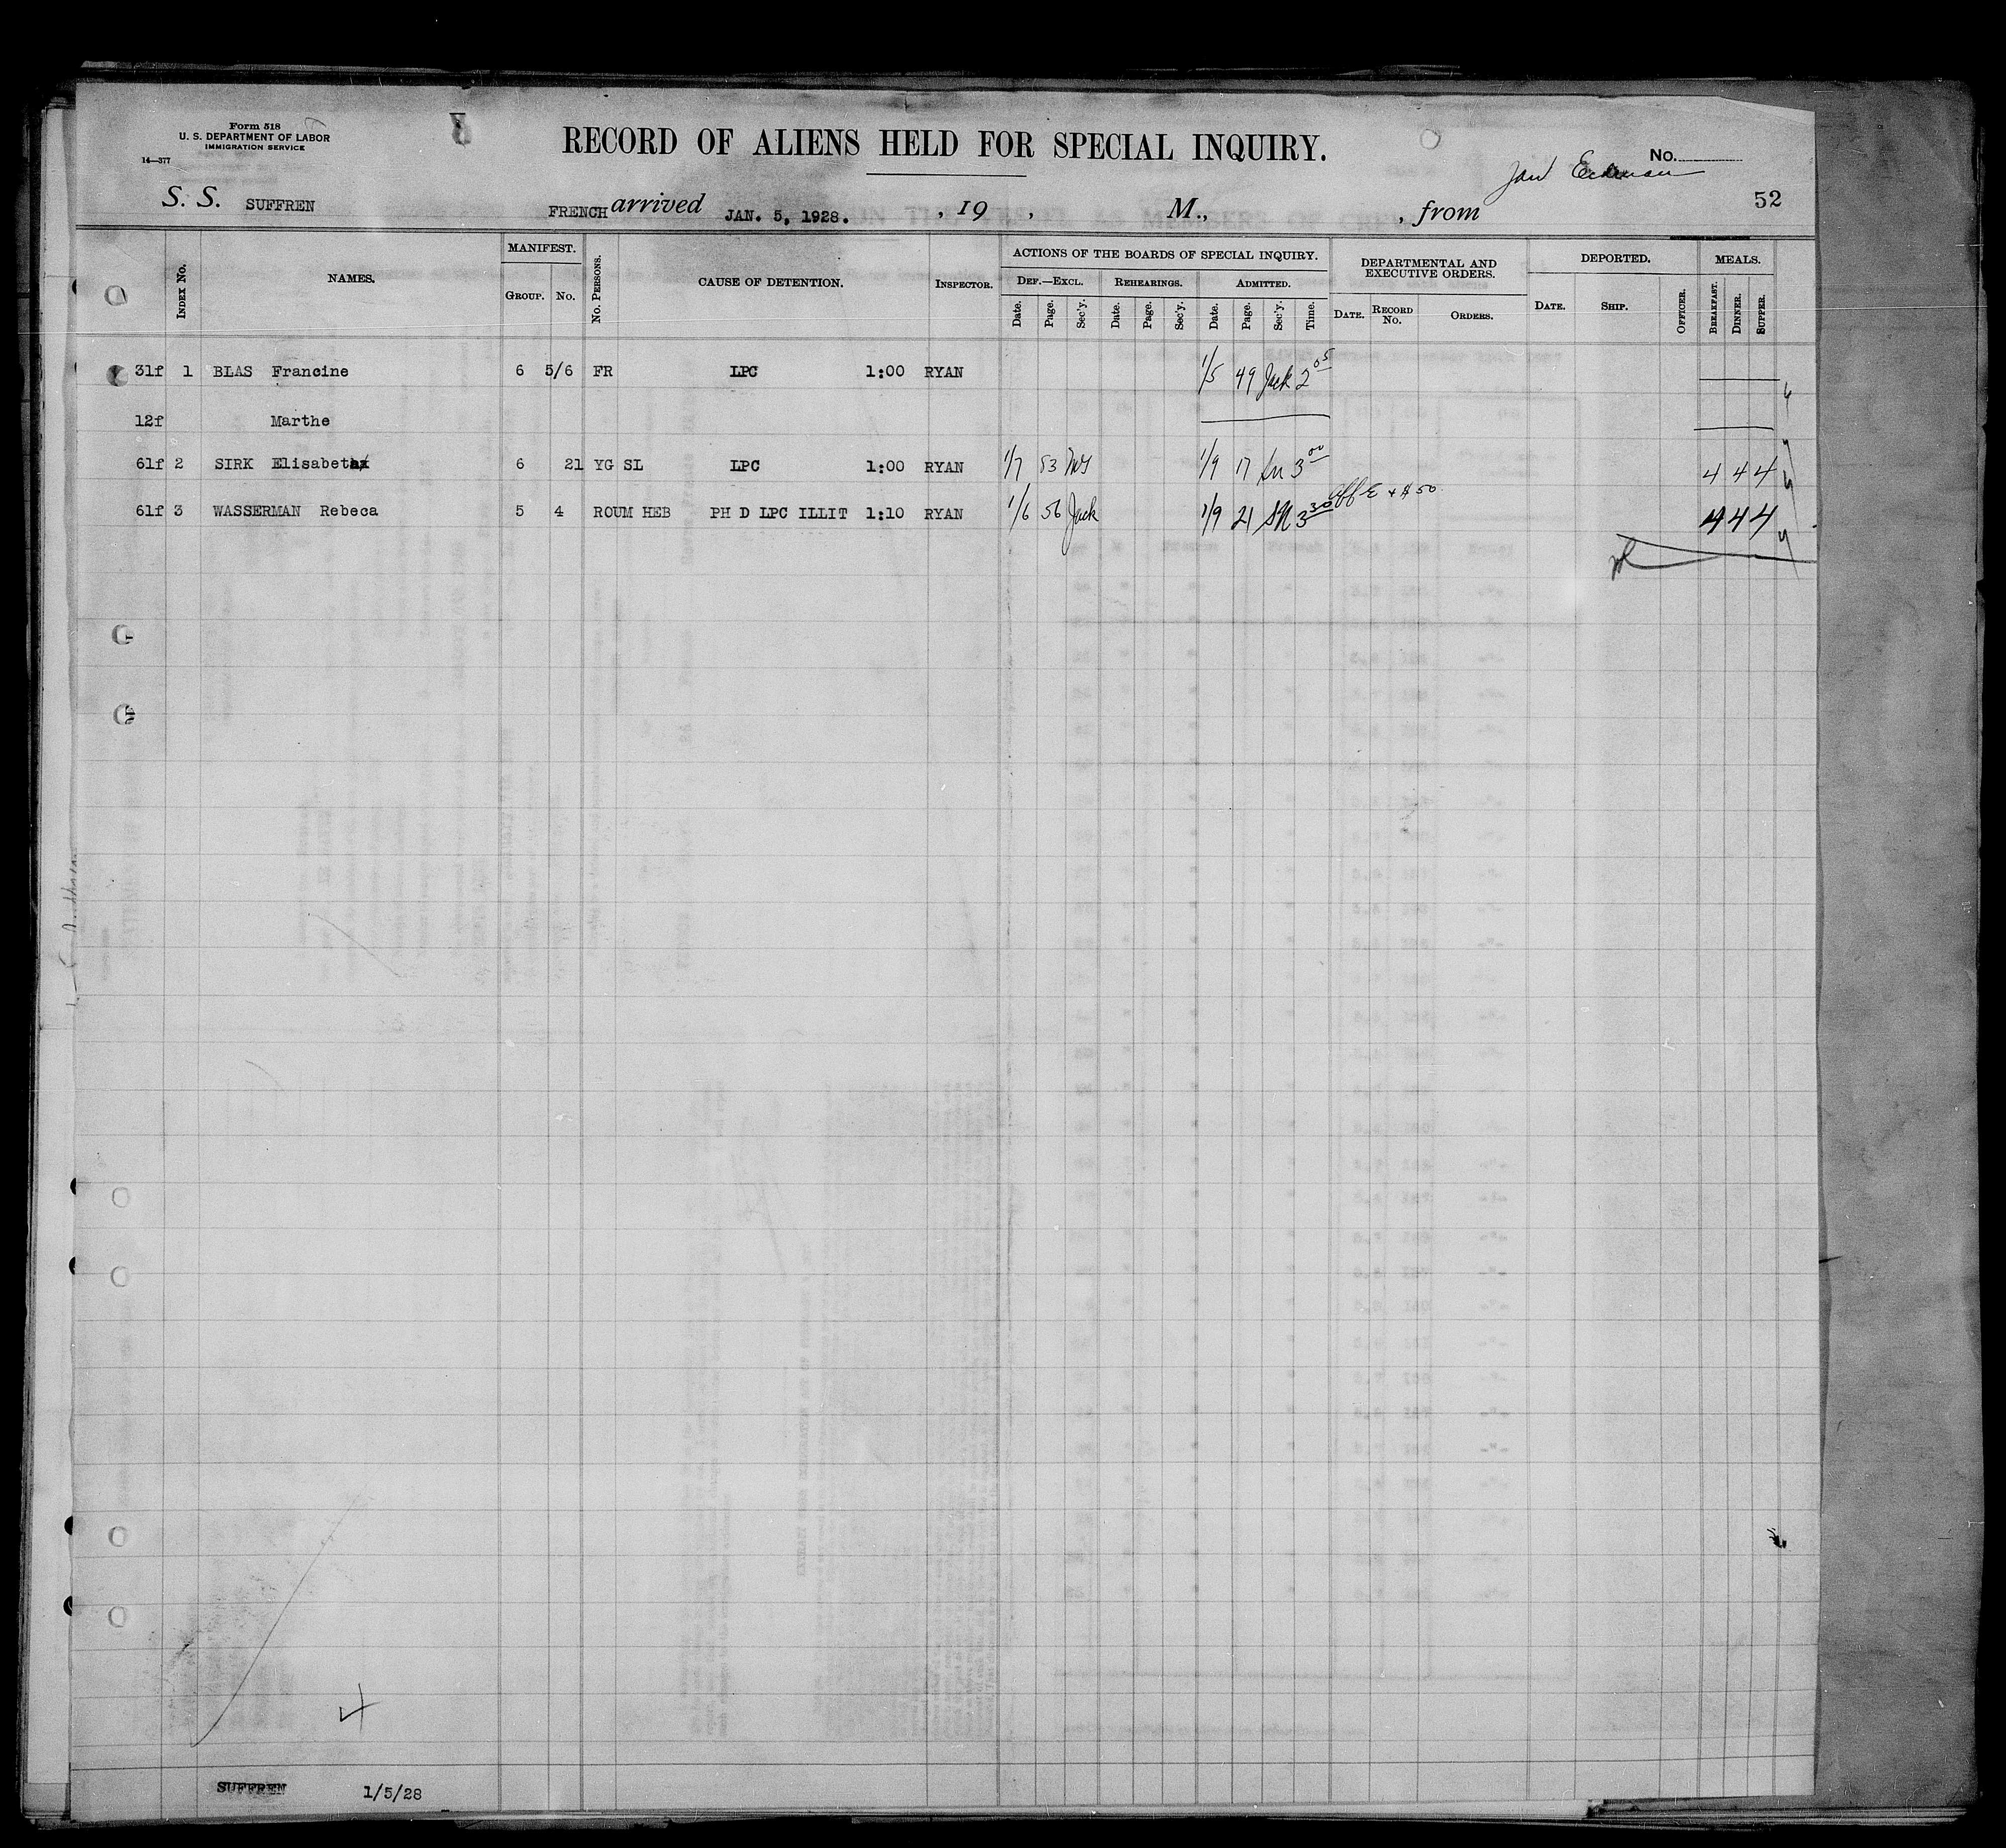 Form 518
U. S. DEPARTMENT OF LABOR
IMMIGRATION SERVICE
14—377
RECORD OF ALIENS HELD FOR SPECIAL INQUIRY.
No.
52
S. S. SUFFREN FRENCH arrived JAN. 5, 1928. , 19 , M., , from
Index No. NAMES. MANIFEST. Group. No. No. Persons. CAUSE OF DETENTION. Inspector. ACTIONS OF THE BOARDS OF SPECIAL INQUIRY. Def.—Excl. Date. Page. Sec'y. Rehearings. Date. Page. Sec'y. Admitted. Date. Page. Sec'y. Time. DEPARTMENTAL AND EXECUTIVE ORDERS. Date. Record No. Orders. DEPORTED. Date. Ship. Officer. MEALS. Breakfast. Dinner. Supper.
31f 1 BLAS Francine 6 5/6 FR LPC 1:00 RYAN 1/5 49 Jack 2 05
12f Marthe
61f 2 SIRK Elisabeth 6 21 YG SL LPC 1:00 RYAN 1/7 53 1/9 17 3 00 4 4 4
61f 3 WASSERMAN Rebeca 5 4 ROUM HEB PH D LPC ILLIT 1:10 RYAN 1/6 56 Jack 1/9 21 SN 3 30 4 4 4
4
SUFFREN 1/5/28